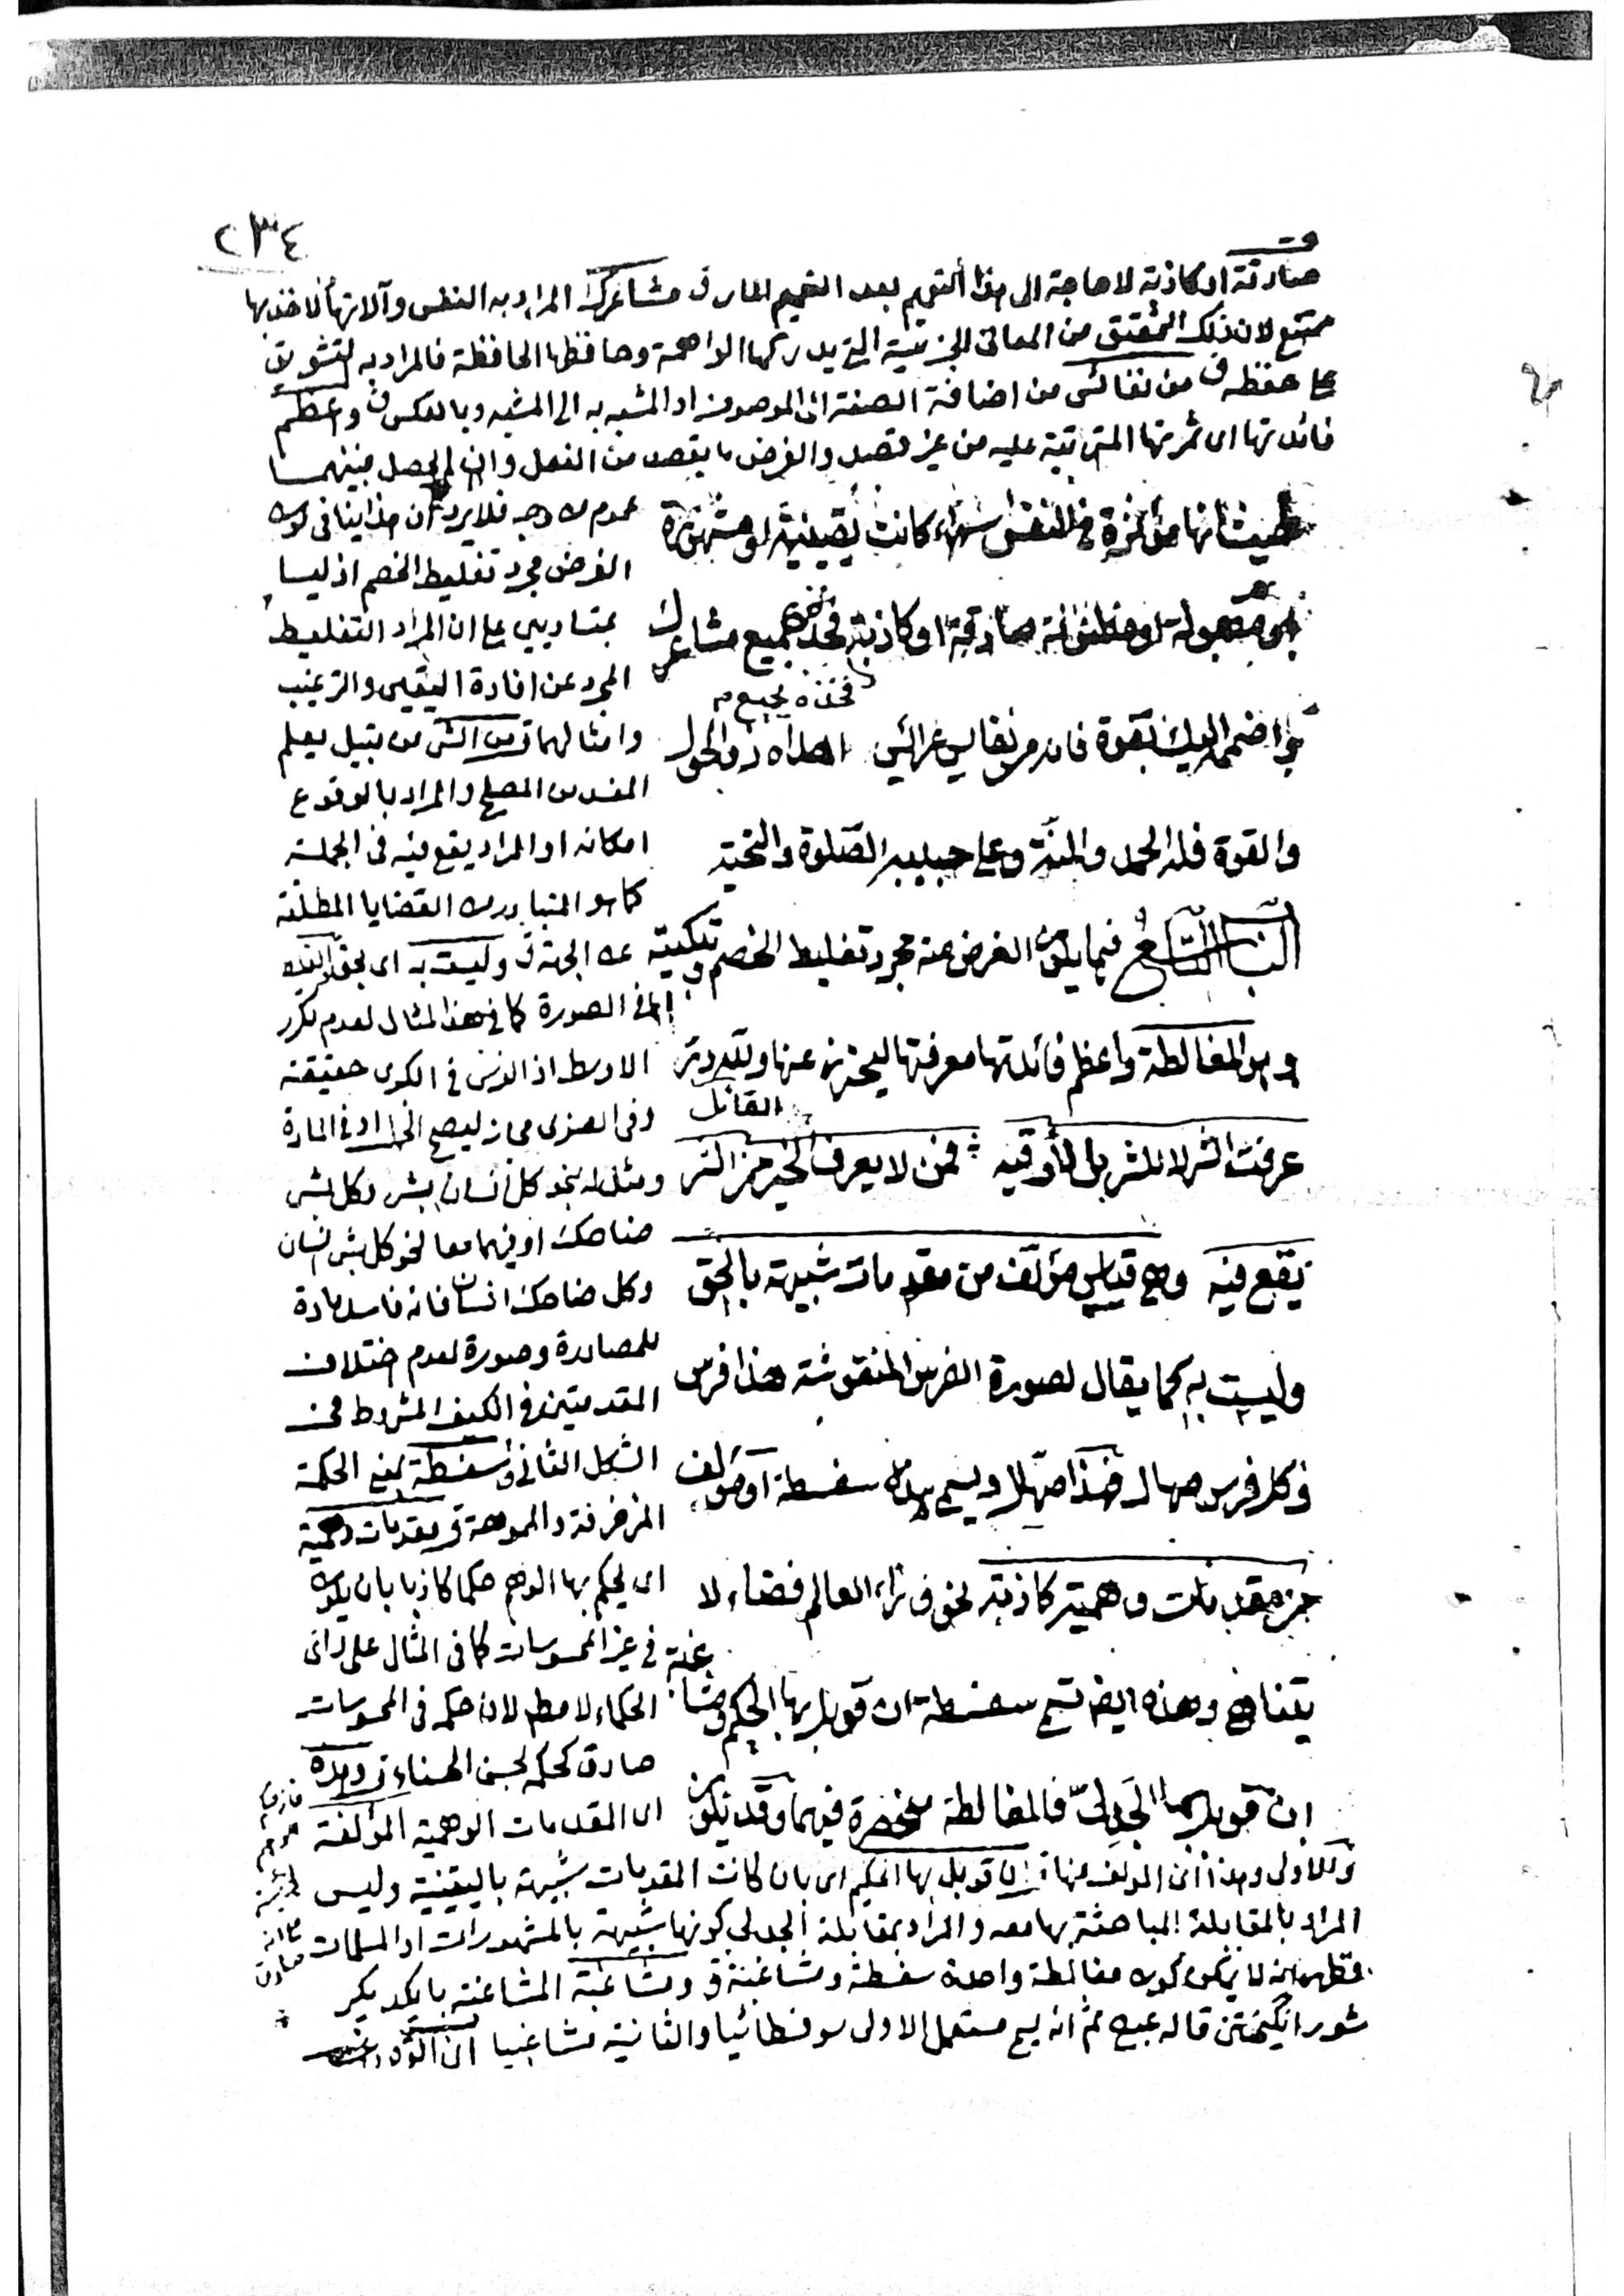 ٢٣٤
صادقة او كاذبة لا حاجة الى هذا التعميم بعد التعميم المار ق مشاعرك المراد به النفس وآلاتها لا اخذ بها
ممتنع لان ذلك التحقيق من المعانى الجزئية التى يدركها الواهمة وحافظها الحافظة فالمراد به التشويق
على حفظه ق من نفائس من اضافة الصفة الى الموصوف او المشبه به الى المشبه وبالعكس ق واعظم
فائدتها اى ثمرتها المترتبة عليه من غير قصد والغرض ما يقصد من الفعل وان لم يحصل فبينهما
حيث انها مؤثرة فى النفس سواء كانت يقينية او مشهورة
او مقبولة او مظنونة صادقة او كاذبة فخذ بجميع مشاعرك
فخذه بجميع م
الغزالى
اهداه ذو الحول
والقوة فله الحمد والمنة وعلى حبيبه الصلوة والتحية
الباب التاسع فيما يكون الغرض منه مجرد تغليط الخصم وتبكيته
وهو المغالطة واعظم فائدتها معرفتها ليحترز عنها ولله در
القائل
عرفت الشر لا للشر بل لتوقيه فمن لا يعرف الخير من الشر
يقع فيه وهى قياس مؤلف من مقدمات شبيهة بالحق
وليست به كما يقال لصورة الفرس المنقوشة هذا فرس
وكل فرس صهال فهذا صهال ويسمى هذه سفسطة او مؤلف
من مقدمات وهمية كاذبة نحو وراء العالم فضاء لا
يتناهى وهذه ايضا تسمى سفسطة ان قوبل بها الحكيم ومشاغبة
ان قوبل بها الجدلى فالمغالطة منحصرة فيهما وقد يكون
عموم من وجه فلا يرد ان هذا ينافى كون
الغرض مجرد تغليط الخصم اذ ليسا
بمتساويين على ان المراد التغليط
المجرد عن افادة اليقين والترغيب
وامثالهما ق من الشر من قبيل يعلم
المفسد من المصلح والمراد بالوقوع
امكانه او المراد يقع فيه فى الجملة
كما هو المتبادر من القضايا المطلقة
عن الجهة ق وليست به اى بحق
اما فى الصورة كما فى هذا المثال لعدم تكرر
الاوسط اذ الفرس فى الكبرى حقيقة
وفى الصغرى مجاز ليصح الحمل او فى المادة
ومثاله نحو كل انسان بشر وكل بشر
ضاحك او فيهما معا نحو كل بشر انسان
وكل ضاحك انسان فانه فاسد مادة
للمصادرة وصورة لعدم اختلاف
المقدمتين فى الكيف المشروط فى
الشكل الثانى ق سفسطة بمعنى الحكمة
المزخرفة والمموهة ق مقدمات وهمية
اى يحكم بها الوهم حكما كاذبا بان يكون
فى غير المحسوسات كما فى المثال على رأى
الحكماء لا مطلقا لان حكمه فى المحسوسات
صادق كحكمه بحسن الحسناء ق وهذه
اى المقدمات الوهمية المؤلفة
كالاولى وهذا اى المؤلف منها ق ان قوبل بها الحكيم اى بان كانت المقدمات شبيهة باليقينية وليس
المراد بالمقابلة المباحثة بها معه والمراد بمقابلة الجدلى كونها شبيهة بالمشهورات او المسلمات
فظهر انه لا يمكن كون مغالطة واحدة سفسطة ومشاغبة ق ومشاغبة المشاغبة با يكديكر
شور انكيختن قاله عبيد ثم انه يسمى مستعمل الاولى سوفسطائيا والثانية مشاغبيا